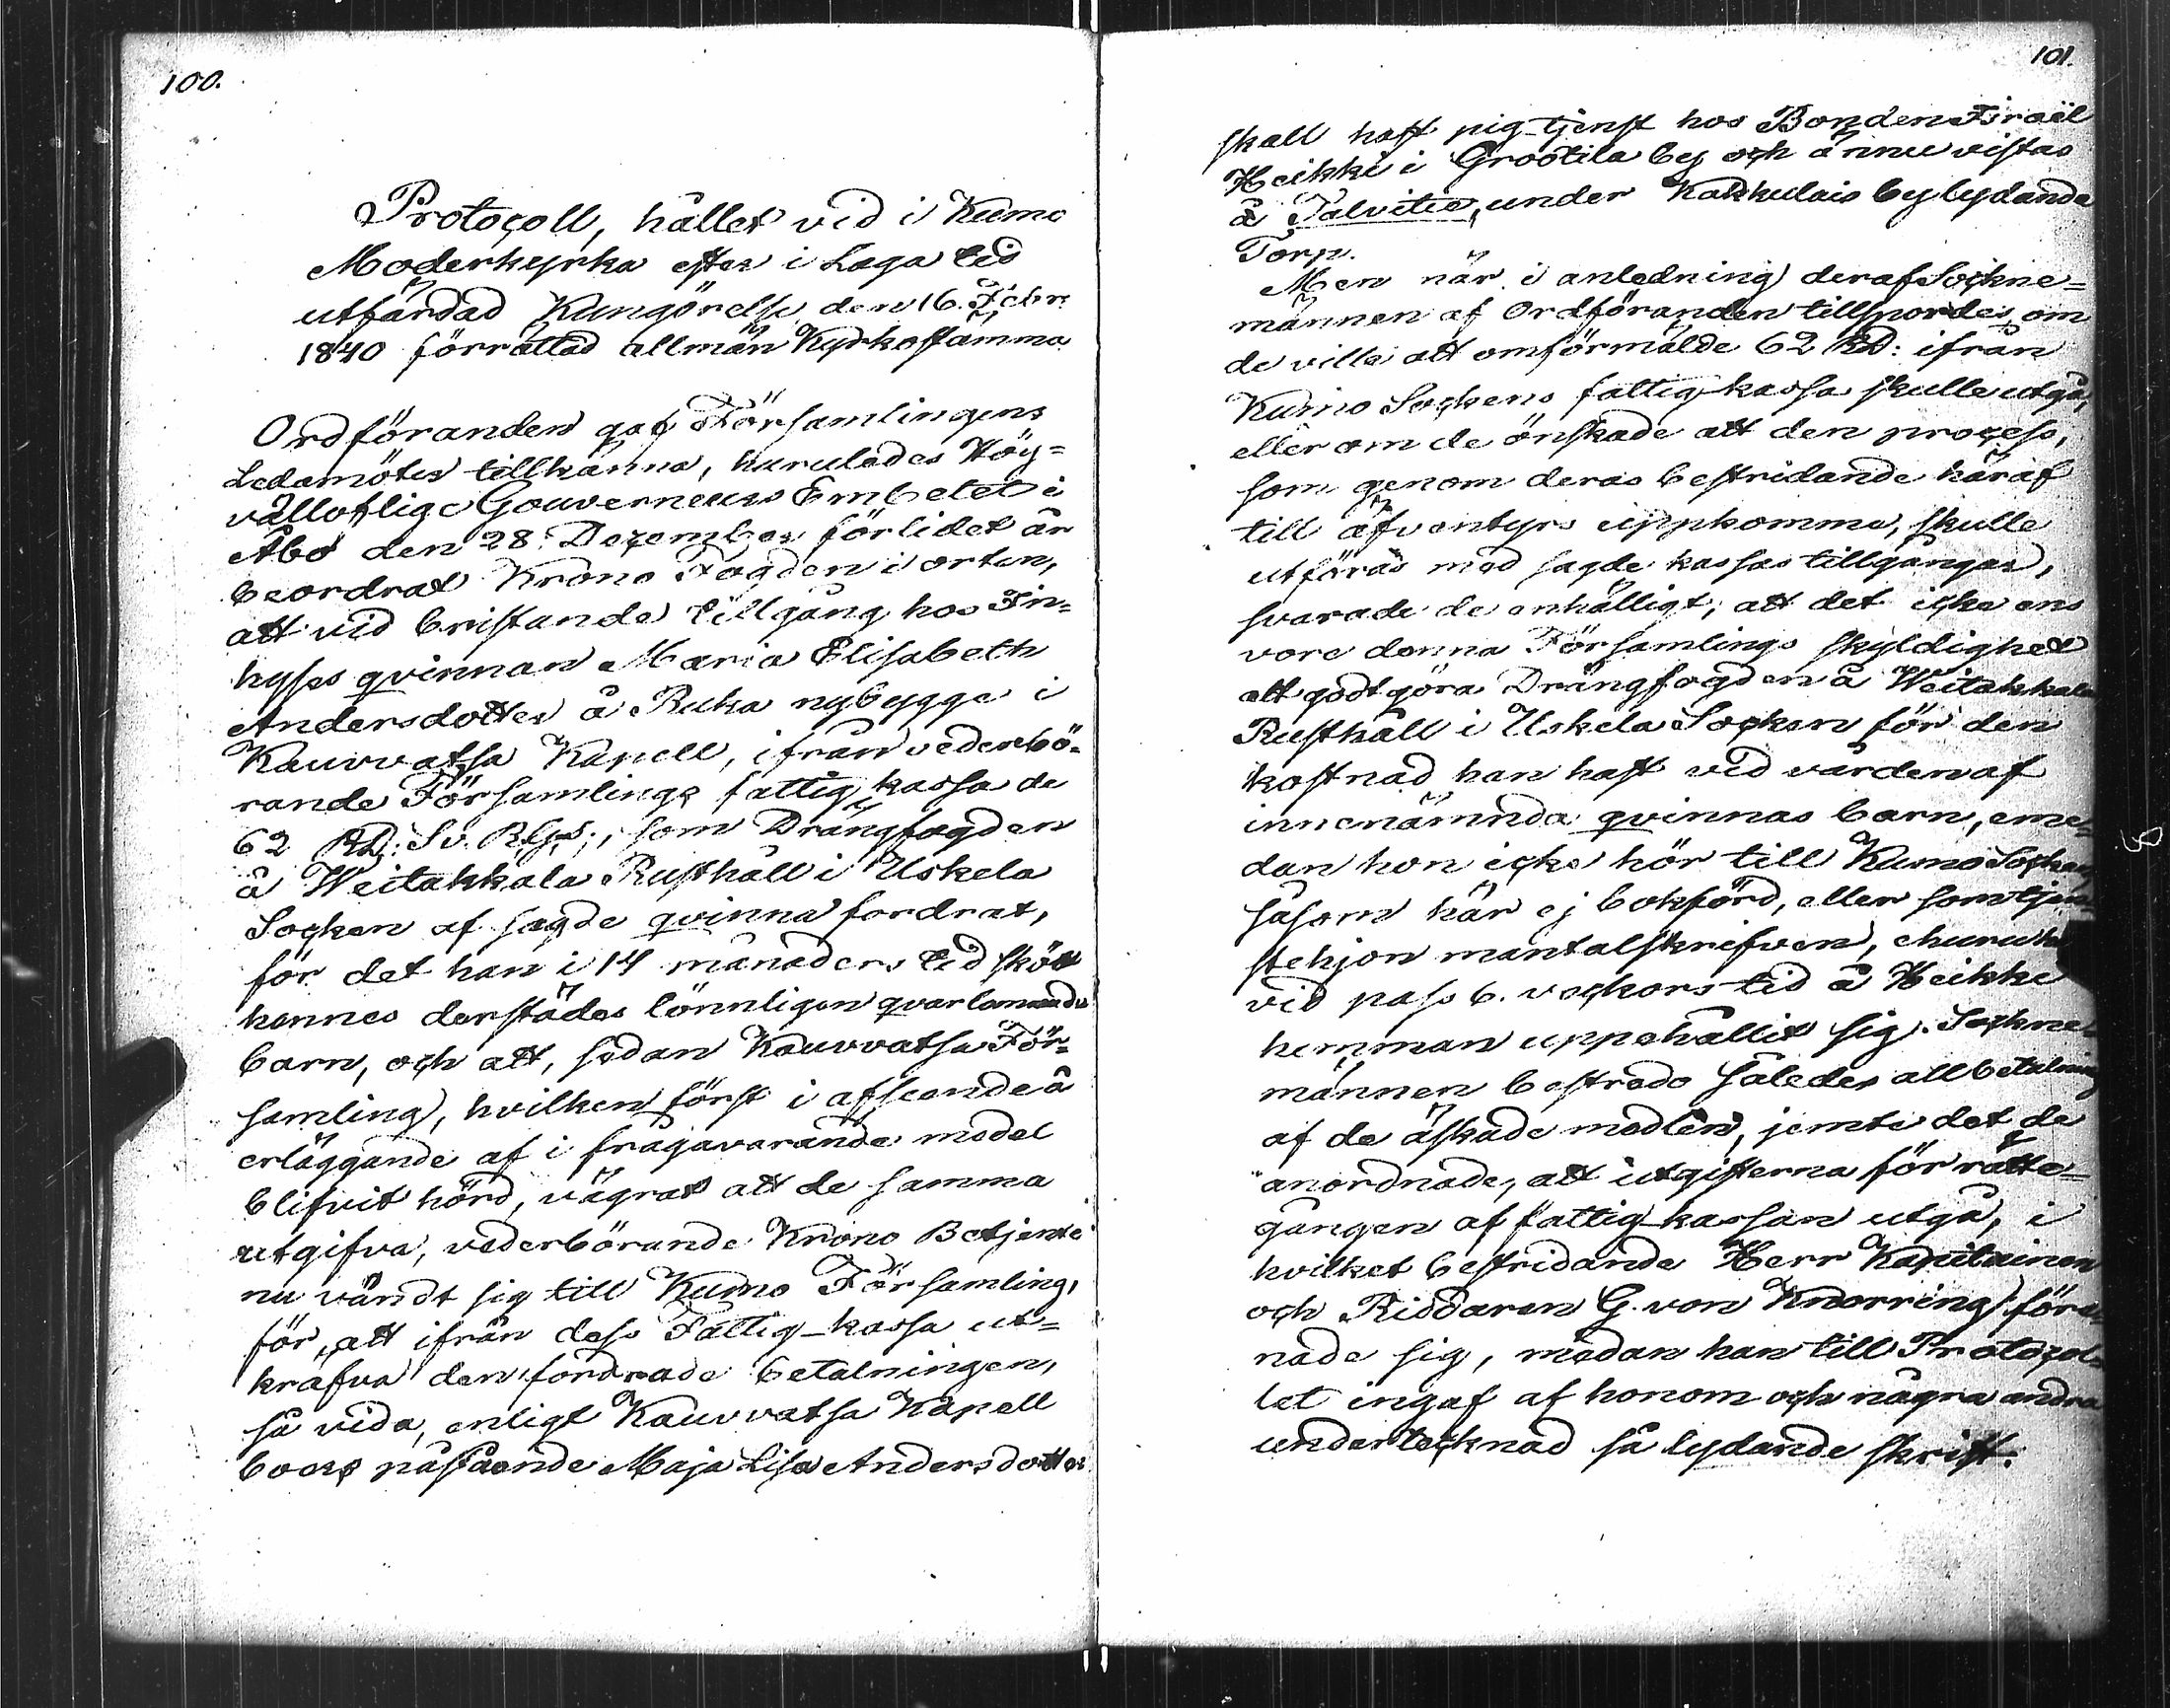 100.
Protocoll, hållet vid i Kumo
Moderkyrka efter i Laga tid
utfärdad Kungörelse den 16. Febr.
1840 förrättad allmän Kyrkostämma.
Ordföranden gaf Församlingens
Ledamöter tillkänna, huruledes Hög=
vällofliga Gouverneurs Embetet i
Åbo den 28. December förlidet år
beordrat Krono Fogden i orten,
att vid bristande tillgång hos In=
hyses qvinnan Maria Elisabeth
Andersdotter å Ruka nybygge i
Kauvvatsa Kapell, ifrån vederbö=
rande Församlings fattig kassa de
62 RD: Sv. Rgs:, som Drängfogden
å Weitakkala Rusthåll i Uskela
Socken af sagde qvinna fordrat,
för det han i 14 månaders tid skött
hennes derstädes lönnligen qvarlemnade
barn, och att, sedan Kauvvatsa För=
samling, hvilken först i afseende å
erläggande af i frågavarande medel
blifvit hörd, vägrat att de samma
utgifva, vederbörande Krono Betjente
nu vändt sig till Kumo Församling,
för att ifrån dess Fattig-kassa ut=
kräfva den fordrade betalningen,
så vida, enligt Kauvvatsa Kapell
boers påstående Maja Lisa Andersdotter
101.
skall haft pig-tjenst hos Bonden Israël
Heikki i Grootila by och ännu vistas
å Talvitie, under Kakkulais by lydande
Torp.
Men när i anledning deraf Sockne=
männen af Ordföranden tillspordes, om
de ville att omförmälde 62 RD: ifrån
Kumo Sockens fattig-kassa skulle utgå,
eller om de önskade att den process,
som genom deras bestridande häraf
till äfventyrs uppkomme, skulle
utföras med sagde kassas tillgångar,
svarade de enhälligt, att det icke ens
vore denna Församlings skyldighet
att godtgöra Drängfogden å Weitakkala
Rusthåll i Uskela Socken för den
kostnad han haft vid vården af
innenämnda qvinnas barn, eme=
dan hon icke hör till Kumo Socken,
såsom här ej bokförd, eller som tjen
stehjon mantalskrifven, ehuru hon
vid pass 6. veckors tid å Heikki
hemman uppehållit sig. Sockne=
männen bestredo således all betalning
af de äskade medlen, jemte det de
anordnade, att utgifterna för rätte=
gången af fattig-kassan utgå, i
hvilket bestridande Herr Kapitainen
och Riddaren G. von Knorring före=
nade sig, medan han till Protocol=
let ingaf af honom och några andra
undertecknad så lydande skrift: